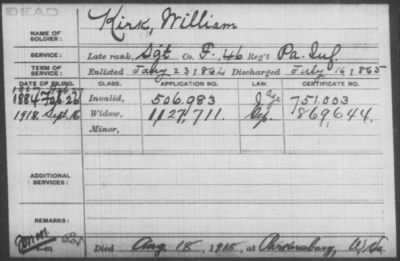 DEAD
NAME OF SOLDIER: Kirk, William
SERVICE: Late rank, Sgt Co. F, 46 Reg't Pa. Inf.
TERM OF SERVICE: Enlisted 1862 Discharged July 16, 1865
DATE OF FILING. CLASS. APPLICATION NO. LAW. CERTIFICATE NO.
1884 Feb. 26 Invalid, 506.983 751.003
1918, Sept. 16 Widow, 1127,711. 869,644.
Minor,
ADDITIONAL SERVICES:
REMARKS:
Died Aug 18, 1918, at Parkersburg, W. Va.